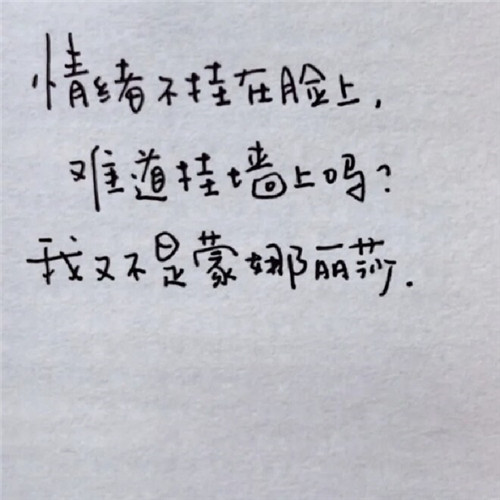 情绪不挂在脸上,
难道挂墙上吗?
我又不是蒙娜丽莎.